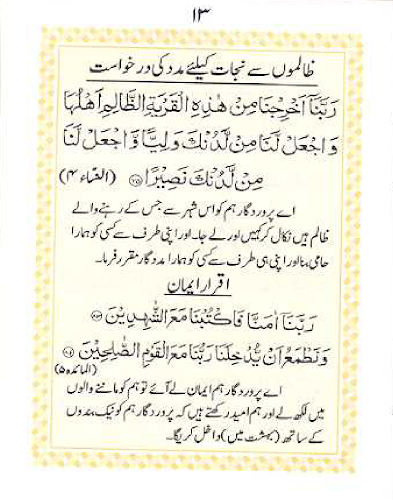 ۱۳
ظالموں سے نجات کیلئے مدد کی درخواست
رَبَّنَآ اَخْرِجْنَا مِنْ هٰذِهِ الْقَرْيَةِ الظَّالِمِ اَهْلُهَا
وَاجْعَلْ لَّنَا مِنْ لَّدُنْكَ وَلِيًّا وَّاجْعَلْ لَّنَا
مِنْ لَّدُنْكَ نَصِيْرًا ۝۷۵ (النساء ۴)
اے پروردگار ہم کو اس شہر سے جس کے رہنے والے
ظالم ہیں نکال کر کہیں اور لے جا۔ اور اپنی طرف سے کسی کو ہمارا
حامی بنا اور اپنی ہی طرف سے کسی کو ہمارا مددگار مقرر فرما۔
اقرار ایمان
رَبَّنَآ اٰمَنَّا فَاكْتُبْنَا مَعَ الشّٰهِدِيْنَ ۝۸۳
وَنَطْمَعُ اَنْ يُّدْخِلَنَا رَبُّنَا مَعَ الْقَوْمِ الصّٰلِحِيْنَ ۝۸۴
(المائدہ ۵)
اے پروردگار ہم ایمان لے آئے تو ہم کو ماننے والوں
میں لکھ لے اور ہم امید رکھتے ہیں کہ پروردگار ہم کو نیک بندوں
کے ساتھ (بہشت میں) داخل کریگا۔